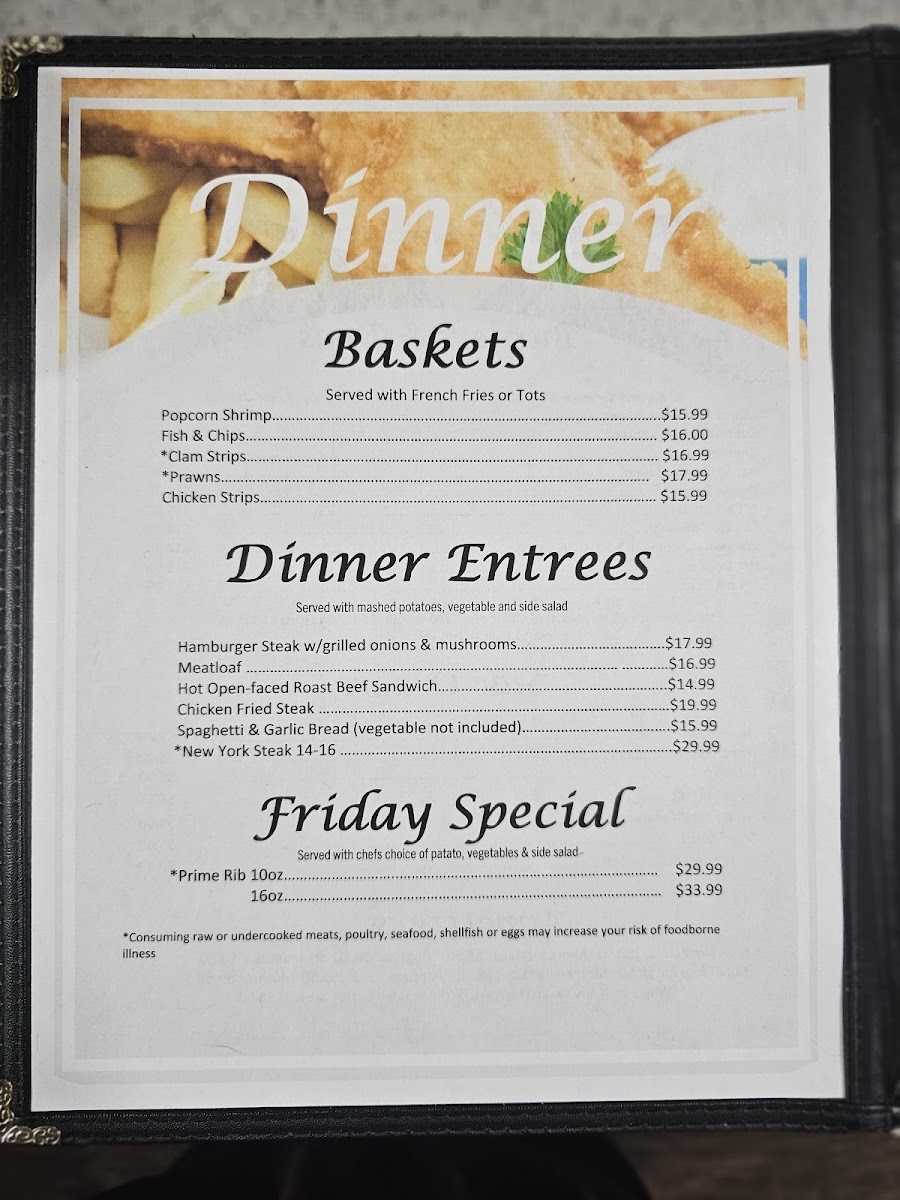 Dinner
Baskets
Served with French Fries or Tots
Popcorn Shrimp..........$15.99
Fish & Chips.......... $16.00
*Clam Strips.......... $16.99
*Prawns.......... $17.99
Chicken Strips.......... $15.99
Dinner Entrees
Served with mashed potatoes, vegetable and side salad
Hamburger Steak w/grilled onions & mushrooms..........$17.99
Meatloaf ..........$16.99
Hot Open-faced Roast Beef Sandwich..........$14.99
Chicken Fried Steak ..........$19.99
Spaghetti & Garlic Bread (vegetable not included)..........$15.99
*New York Steak 14-16 ..........$29.99
Friday Special
Served with chefs choice of patato, vegetables & side salad
*Prime Rib 10oz.......... $29.99
16oz.......... $33.99
*Consuming raw or undercooked meats, poultry, seafood, shellfish or eggs may increase your risk of foodborne
illness